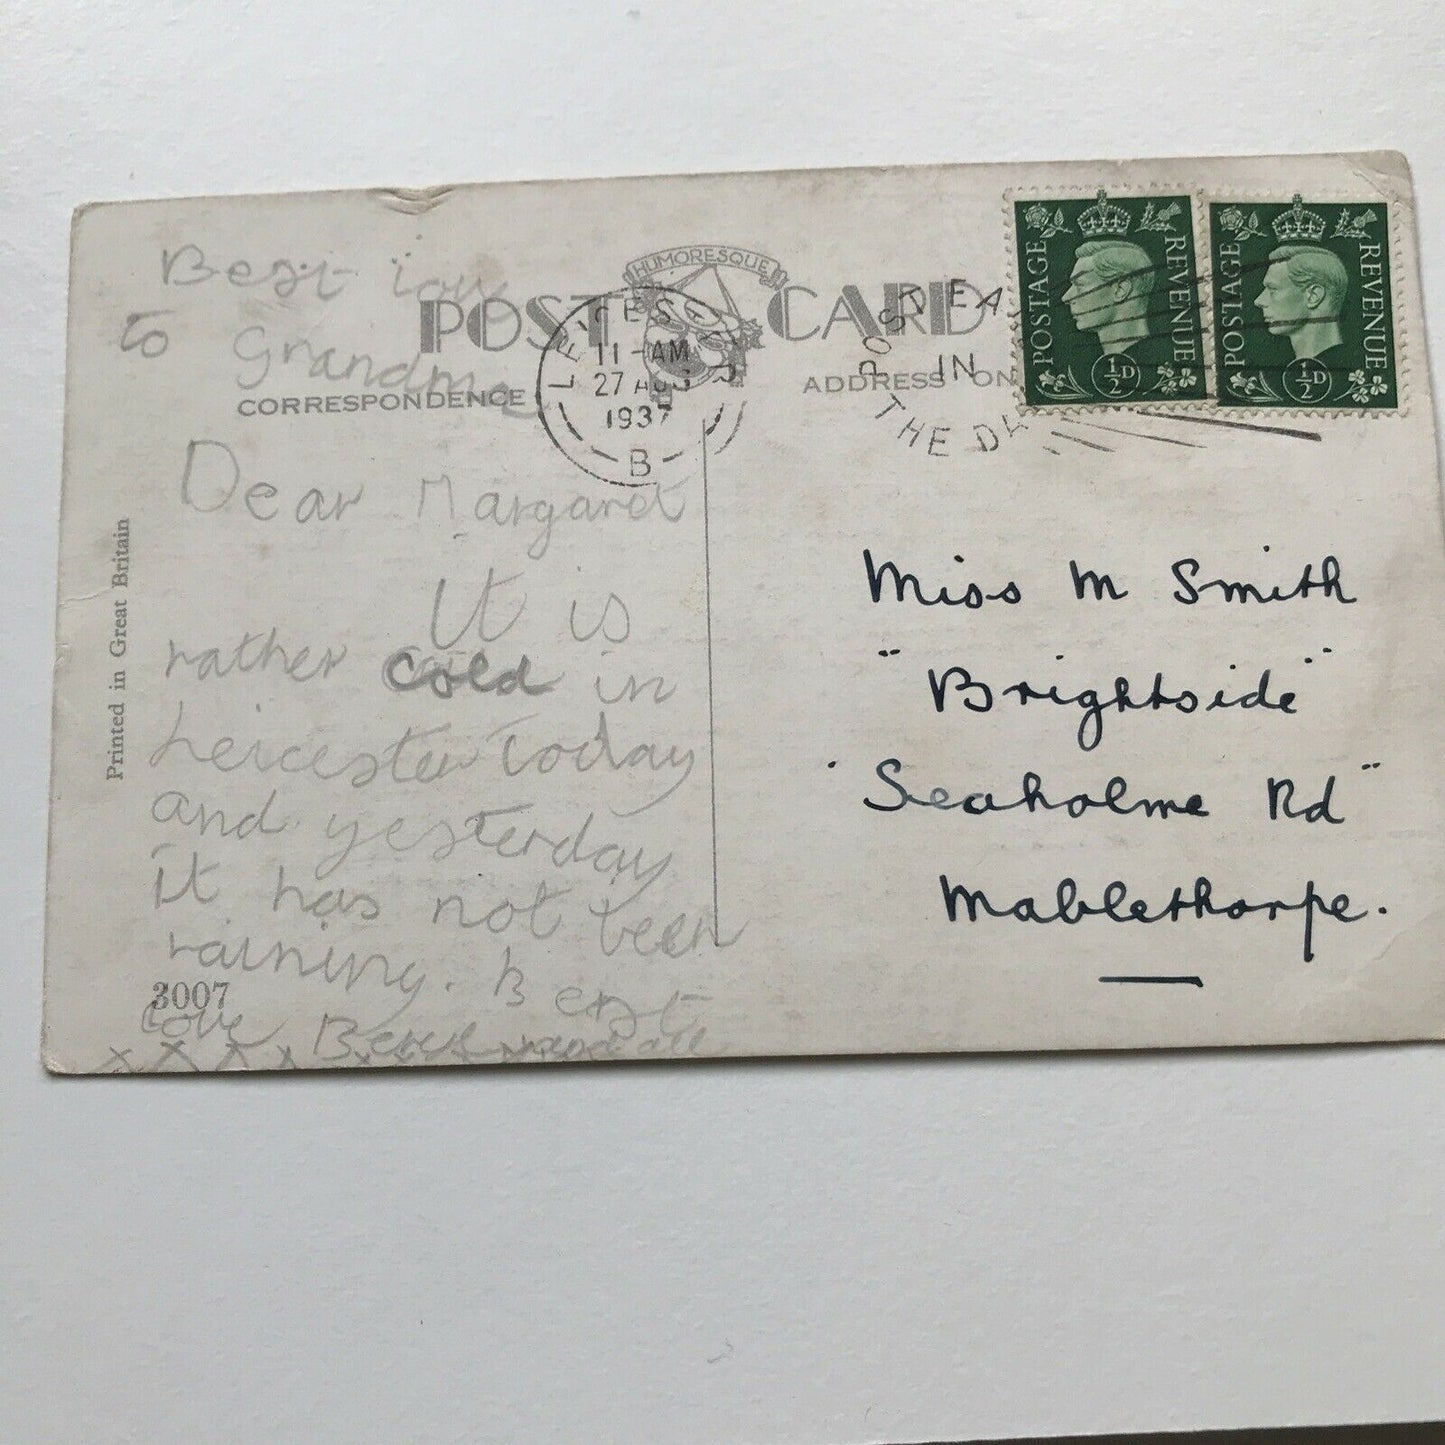 Best
to Grandma
HUMORESQUE
POST CARD
CORRESPONDENCE
ADDRESS ON
LEICESTER
11-AM
27 AUG
1937
B
POST EA
IN
THE DA
POSTAGE REVENUE
½D
POSTAGE REVENUE
½D
Printed in Great Britain
Dear Margaret
It is
rather cold in
Leicester today
and yesterday
it has not been
raining. Best
3007
love
x x x x x x x
Miss M Smith
"Brightside"
Seaholme Rd"
Mablethorpe.